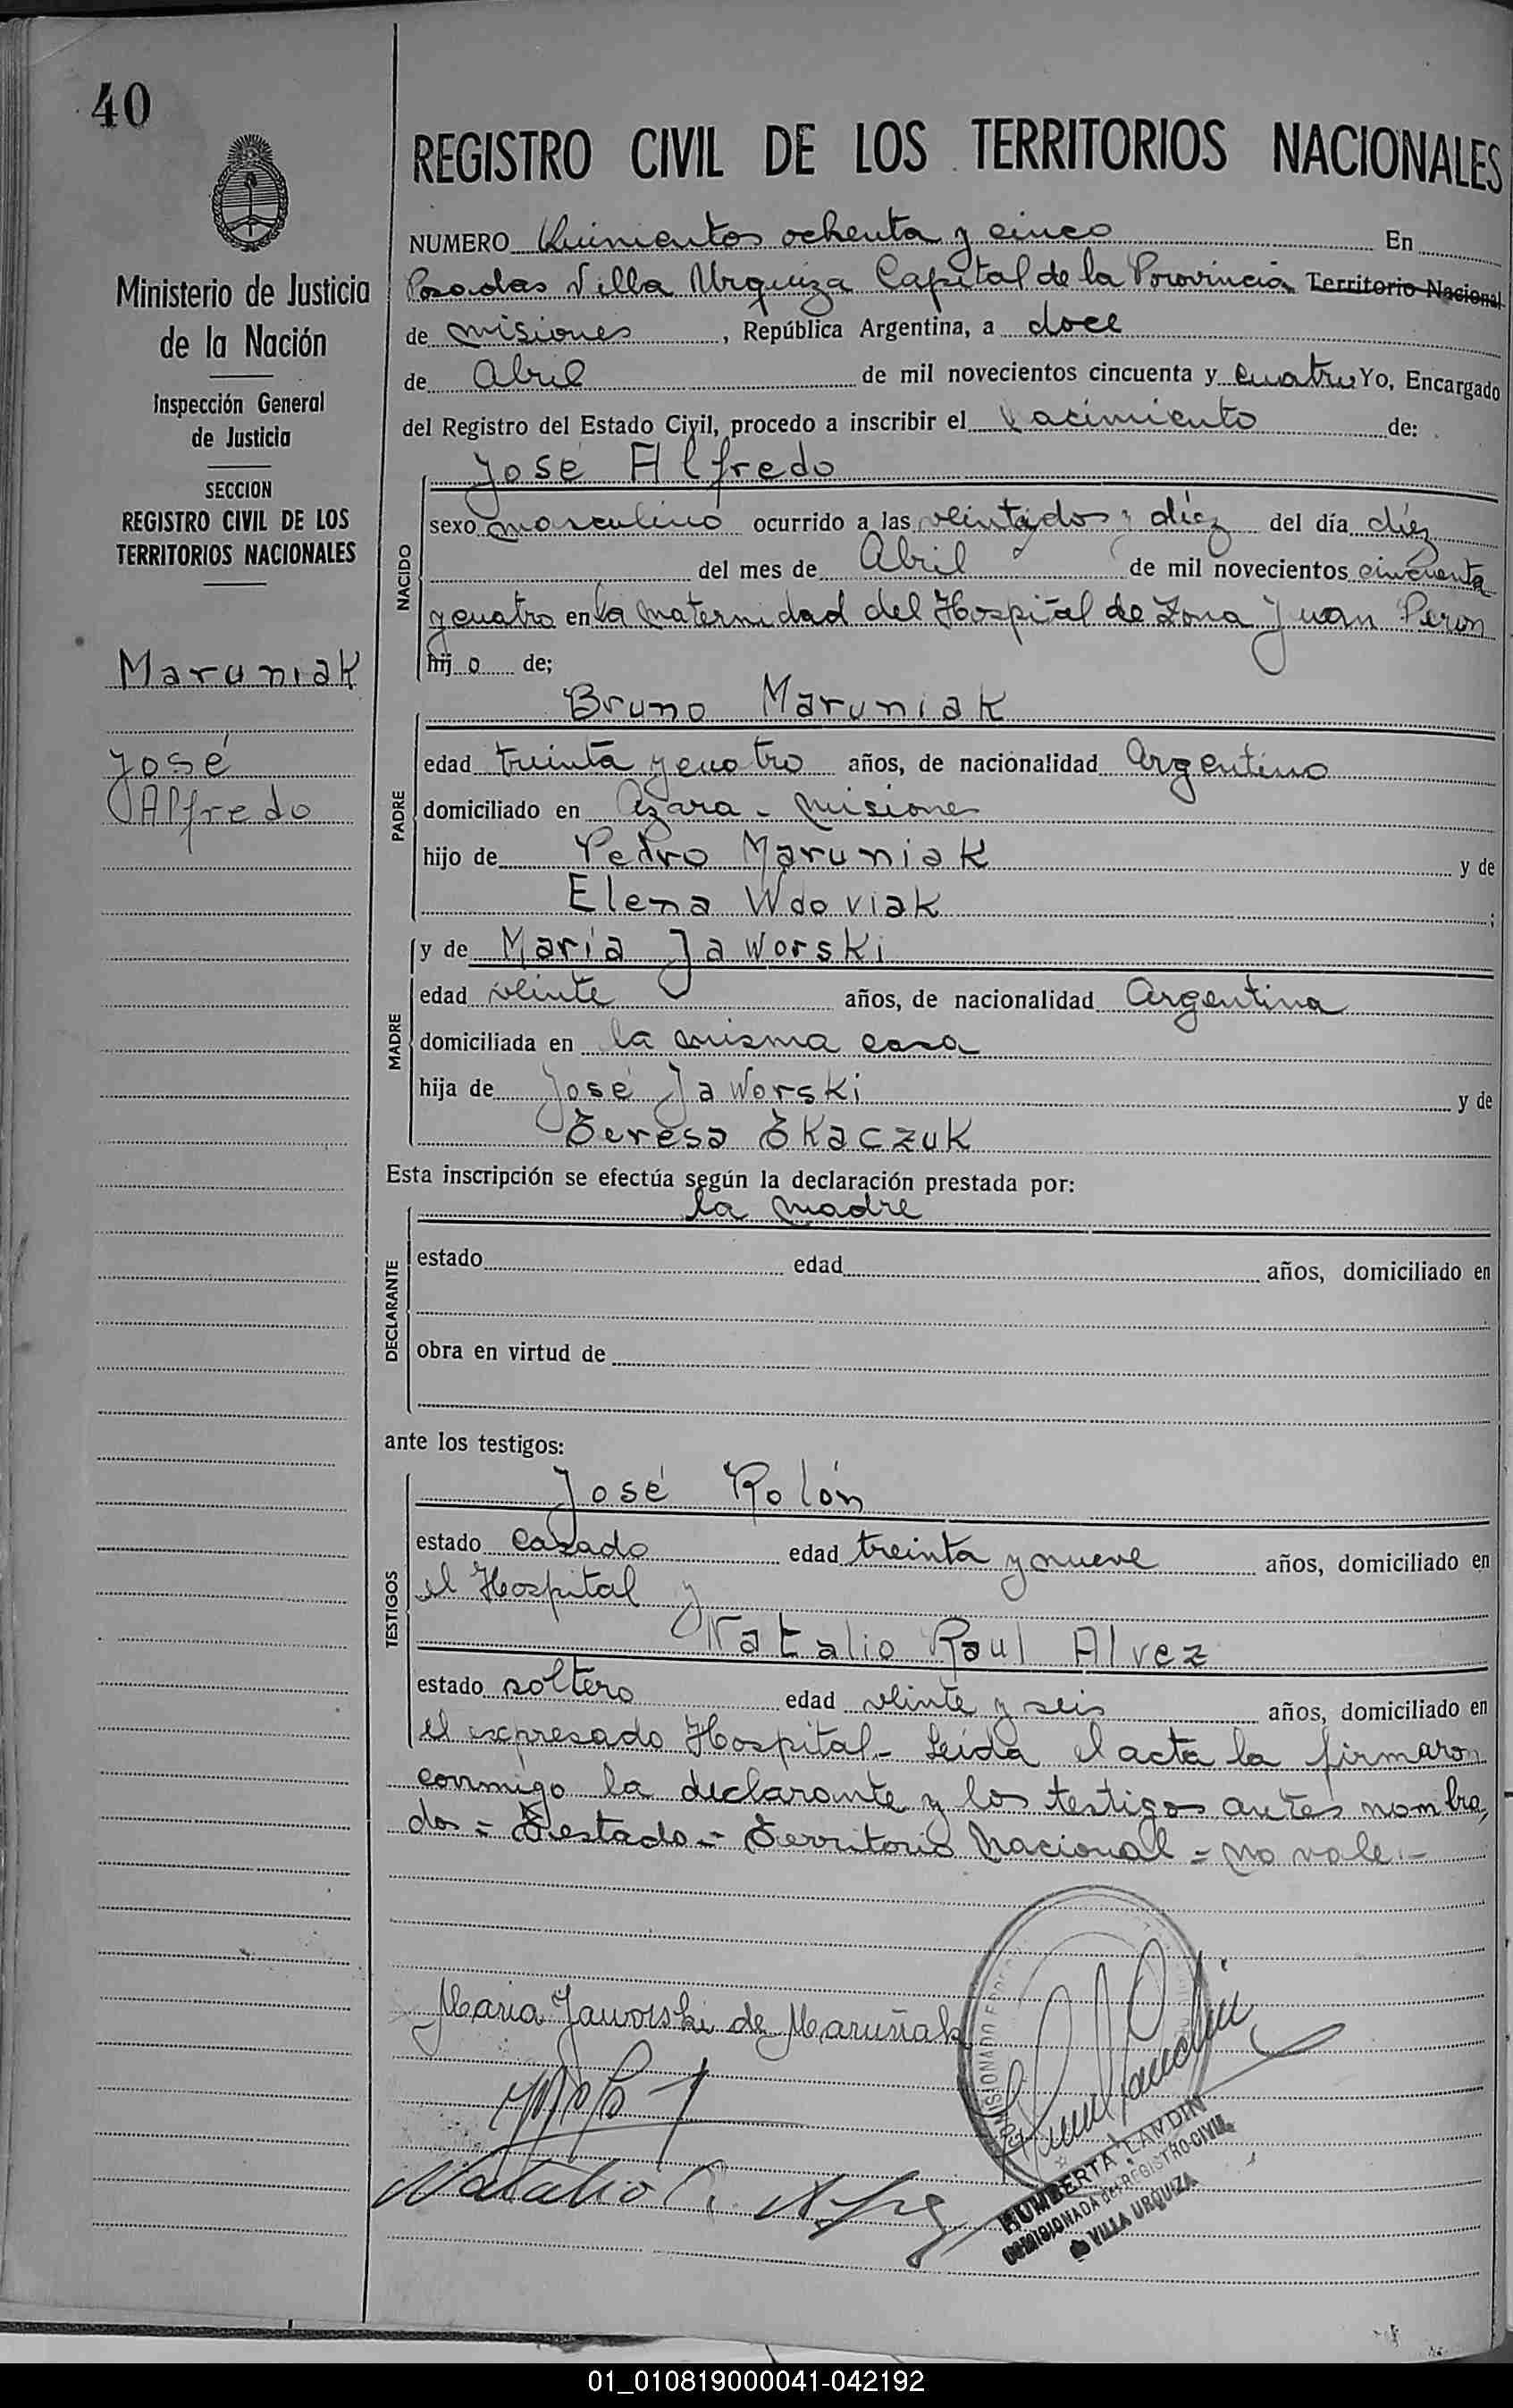 40
REGISTRO CIVIL DE LOS TERRITORIOS NACIONALES
Ministerio de Justicia
de la Nación
Inspección General
de Justicia
SECCION
REGISTRO CIVIL DE LOS
TERRITORIOS NACIONALES
Maruniak
José
Alfredo
NUMERO Quinientos ochenta y cinco En
Posadas Villa Urquiza Capital de la Provincia Territorio Nacional
de Misiones, República Argentina, a doce
de Abril de mil novecientos cincuenta y cuatro Yo, Encargado
del Registro del Estado Civil, procedo a inscribir el Nacimiento de:
José Alfredo
NACIDO
sexo masculino ocurrido a las veintidos y diéz del día diéz
del mes de Abril de mil novecientos cincuenta
y cuatro en la Maternidad del Hospital de Zona Juan Peron
hijo de;
Bruno Maruniak
PADRE
edad treinta y cuatro años, de nacionalidad Argentino
domiciliado en Azara - Misiones
hijo de Pedro Maruniak y de
Elena Wdoviak;
MADRE
y de María Jaworski
edad veinte años, de nacionalidad Argentina
domiciliada en la misma casa
hija de José Jaworski y de
Teresa Tkaczuk
Esta inscripción se efectúa según la declaración prestada por:
la Madre
DECLARANTE
estado edad años, domiciliado en
obra en virtud de
ante los testigos:
José Rolón
TESTIGOS
estado casado edad treinta y nueve años, domiciliado en
el Hospital y
Natalio Raul Alvez
estado soltero edad veinte y seis años, domiciliado en
el expresado Hospital - Leída el acta la firmaron
conmigo la declarante y los testigos antes nombra
dos = Testado = Territorio Nacional = no vale.-
Maria Jaworski de Maruñak
Natalio R. Alvez
HUMBERTA LANDIN
COMISIONADA DEL REGISTRO CIVIL
de VILLA URQUIZA
01_010819000041-042192